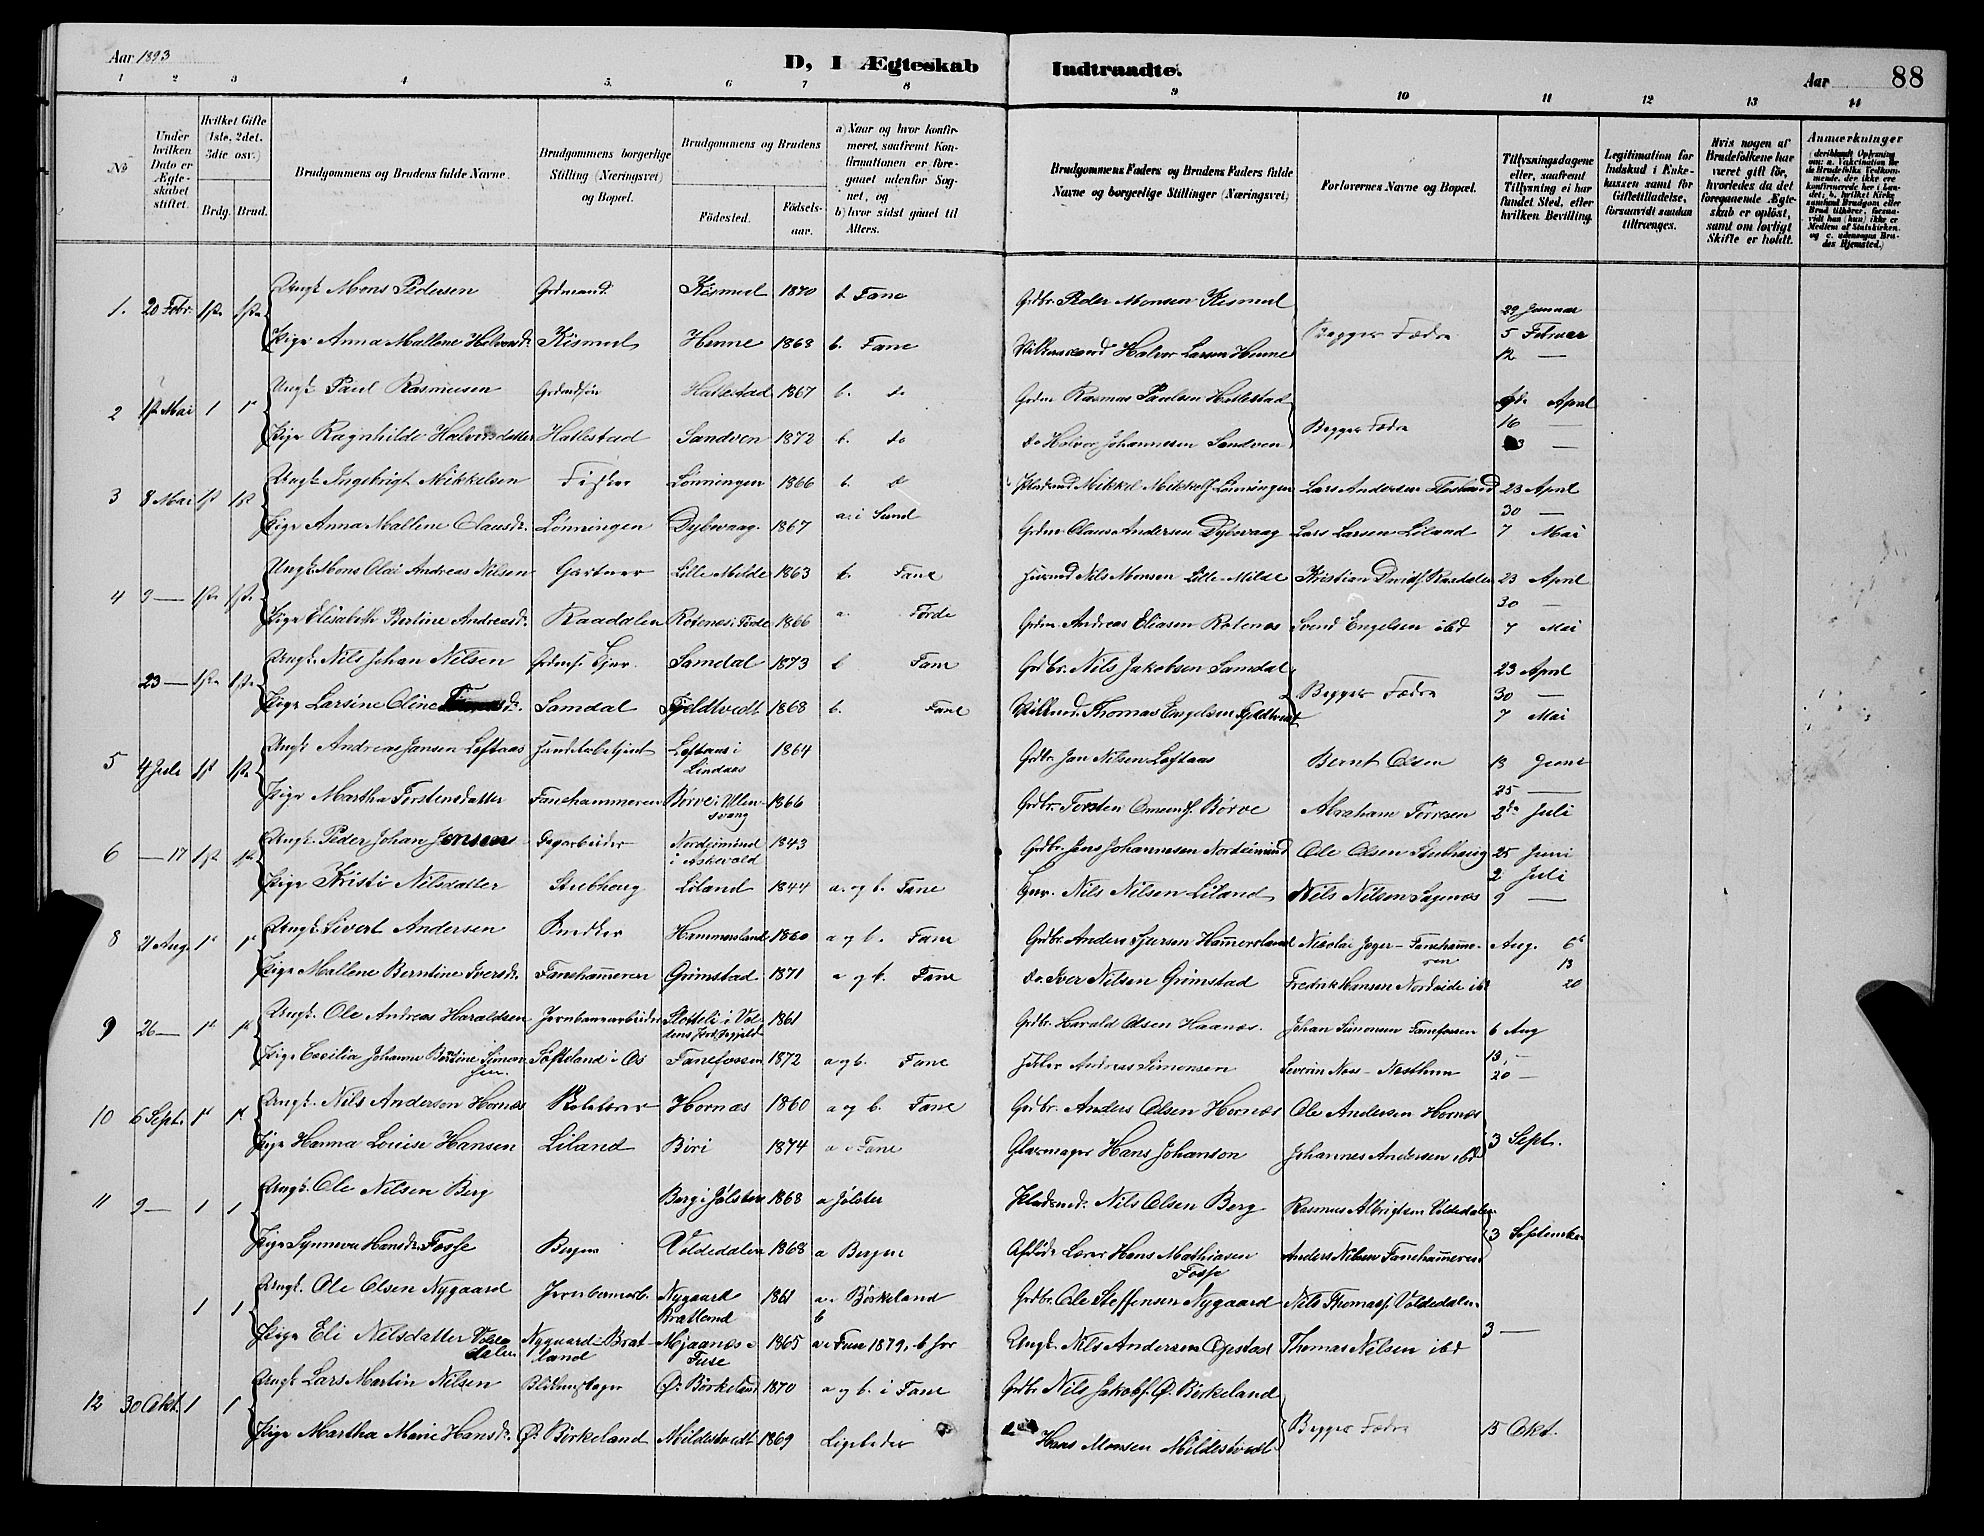 Aar 1893
D, I Ægteskab Indtraadte.
Aar 88
1 2 3 4 5. 6 7 8 9 10 11 12 13 14
No
Under hvilken Dato er Ægteskabet stiftet.
Hvilket Gifte (1ste, 2det, 3die osv.)
Brdg. Brud.
Brudgommens og Brudens fulde Navne.
Brudgommens borgerlige Stilling (Næringsvei) og Bopæl.
Brudgommens og Brudens
Födested. Födselsaar.
a) Naar og hvor konfirmeret, saafremt Konfirmationen er foregaaet udenfor Sognet, og
b) hvor sidst gaaet til Alters.
Brudgommens Faders og Brudens Faders fulde Navne og borgerlige Stillinger (Næringsvei)
Forlovernes Navne og Bopæl.
Tillysningsdagene eller, saafremt Tillysning ei har fundet Sted, efter hvilken Bevilling.
Legitimation for Indskud i Enkekassen samt for Giftetilladelse, forsaavidt saadan tiltrænges.
Hvis nogen af Brudefolkene har været gift för, hvorledes da det foregaaende Ægteskab er oplöst, samt om lovligt Skifte er holdt.
Anmærkninger
(deriblandt Oplysning om: a. Vakcination for de Brudefolks Vedkommende, der ikke ere konfirmerede her i Landet; b. hvilket Kirkesamfund Brudgom eller Brud tilhörer, forsaavidt han (hun) ikke er Medlem af Statskirken, og c. udensogns Brudes Hjemsted.)
1. 20 Febr. 1ste 1ste Ungk. Mons Pedersen Grdmand. Kismul 1870 b Fane Grdbr. Peder Monsen Kismul 29 Januar
Pige Anna Mallene Halvorsd. Kismul Henne 1868 b. Fane Halvor Larsen Henne Begges Fædre 5 Februar
12 —
2 1ste Mai 1 1 Ungk. Paul Rasmusen Grdmdsön Hatlestad 1867 b. do Grdm Rasmus Paulsen Hatlestad April
Pige Ragnhilde Halvorsdatter Hatlestad Sandven 1872 b. do do Halvor Johannesen Sandven Begges Fædre 16 —
23 —
3 8 Mai 1st 1st Ungk. Ingebrigt Mikkelsen Fisker Lönningen 1866 b. d Pladsmd Mikkel Mikkels. Lönningen Lars Andersen 23 April
30 —
Pige Anna Mallene Clausd. Lönningen Dybevaag. 1867 a. i Sund Grdm Claus Andersen Dybevaag Lars Larsen Liland 7 Mai
4 9 — 1ste 1ste Ungk. Mons Olai Andreas Nilsen Gartner Lille Milde 1863 b. Fane Husmd Nils Monsen Lille Milde Kristian Davids. Raadalen 23 April
30 —
Pige Elisabeth Bertine Andreasd. Raadalen Rotenes i Förde 1866 a. Förde Grdm Andreas Eliasen Rotenes Svend Engelsen ibd 7 Mai
23 — 1ste 1ste Ungk. Nils Johan Nilsen Samdal 1873 b Fane Grdbr. Nils Jakobsen Samdal 23 April
Pige Larsine Oline Samdal Fjeldtvedt 1868 b. Fane Thomas Engelsen Fjeldtvedt Begges Fædre 30 —
7 Mai
5 4 Juli 1st 1ste Ungk. Andreas Jansen Loftaas Loftaas i Lindaas 1864 Grdbr. Jan Nilsen Loftaas Bernt Olsen 18 Juni
25 —
Pige Martha Torstensdatter Fanehammeren Börve i Ullensvang 1866 Grdbr. Torsten Omunds. Börve Abraham Torresen 2de Juli
6 — 17 1ste 1ste Ungk. Peder Johan Jensen Dagarbeider i Askevold 1843 Grdbr. Jens Johannesen Ole Olsen Stubhaug 25 Juni
2 Juli
Pige Kristi Nilsdatter Stubhaug Liland 1844 a. og b. Fane Nils Nilsen Liland Nils Nilsen 9 —
8 21 Aug. 1st 1st Ungk. Sivert Andersen Snedker Hammersland 1860 a og b. Fane Grdbr. Anders Sjursen Hammersland Nicolai Jeger – Fanehammeren Aug. 6te
13
Pige Mallene Berntine Iversd. Fanehammeren Grimstad 1871 a og b. Fane do. Iver Nilsen Grimstad Fredrik Hansen Nordeide ibd 20
9 26 — 1st 1st Ungk. Ole Andreas Haraldsen Jernbanearbeider 1861 Grdbr. Harald Olsen Haanes. Johan Simonsen Fanefossen 6 Aug
13 —
Pige Cecilia Johanne Bertine Simonsen. Söfteland i Os Fanefossen 1872 a og b. Fane Andreas Simonsen Severin Næs – Næsttun 20 —
10 6 Sept. 1st 1st Ungk. Nils Andersen Hornes Hornæs 1860 a og b. Fane Grdbr. Anders Olsen Hornæs Ole Andersen Hornæs
Pige Hanna Louise Hansen Liland Biri 1874 a i Fane Glasmager Hans Johanson Johannes Andersen ibd 3 Sept.
11 9 — 1 1 Ungk. Ole Nilsen Berg Berg i Jölster 1868 a Jölster Pladsmd. Nils Olsen Berg Rasmus Albrigtsen Voldedalen
Pige Synneva Hansdr Fosse Bergen Voldedalen 1868 a Bergen Afdöde Lærer Hans Mathiasen Fosse Anders Nilsen Fanehammeren 3 September
1 1 Ungk. Ole Olsen Nygaard Jernbanearb. Nygaard Bratland 1861 a. Birkeland b Grdbr. Ole Steffensen Nygaard Nils Thomas. Voldedalen
Pige Eli Nilsdatter Voldedalen Nygaard – Bratland Mjaanes i Fuse 1865 a i Fuse 1879, b her Ungk. Nils Andersen Opstad Thomas Nilsen ibd 3 —
12 30 Okt. 1 1 Ungk. Lars Martin Nilsen Ö. Birkeland 1870 a og b. i Fane Grdbr Nils Jakobs. Ö. Birkeland
Pige Martha Marie Hansd. Ö. Birkeland Mildestvedt 1869 Ligeledes Hans Monsen Mildestvedt Begges Fædre 15 Okt.